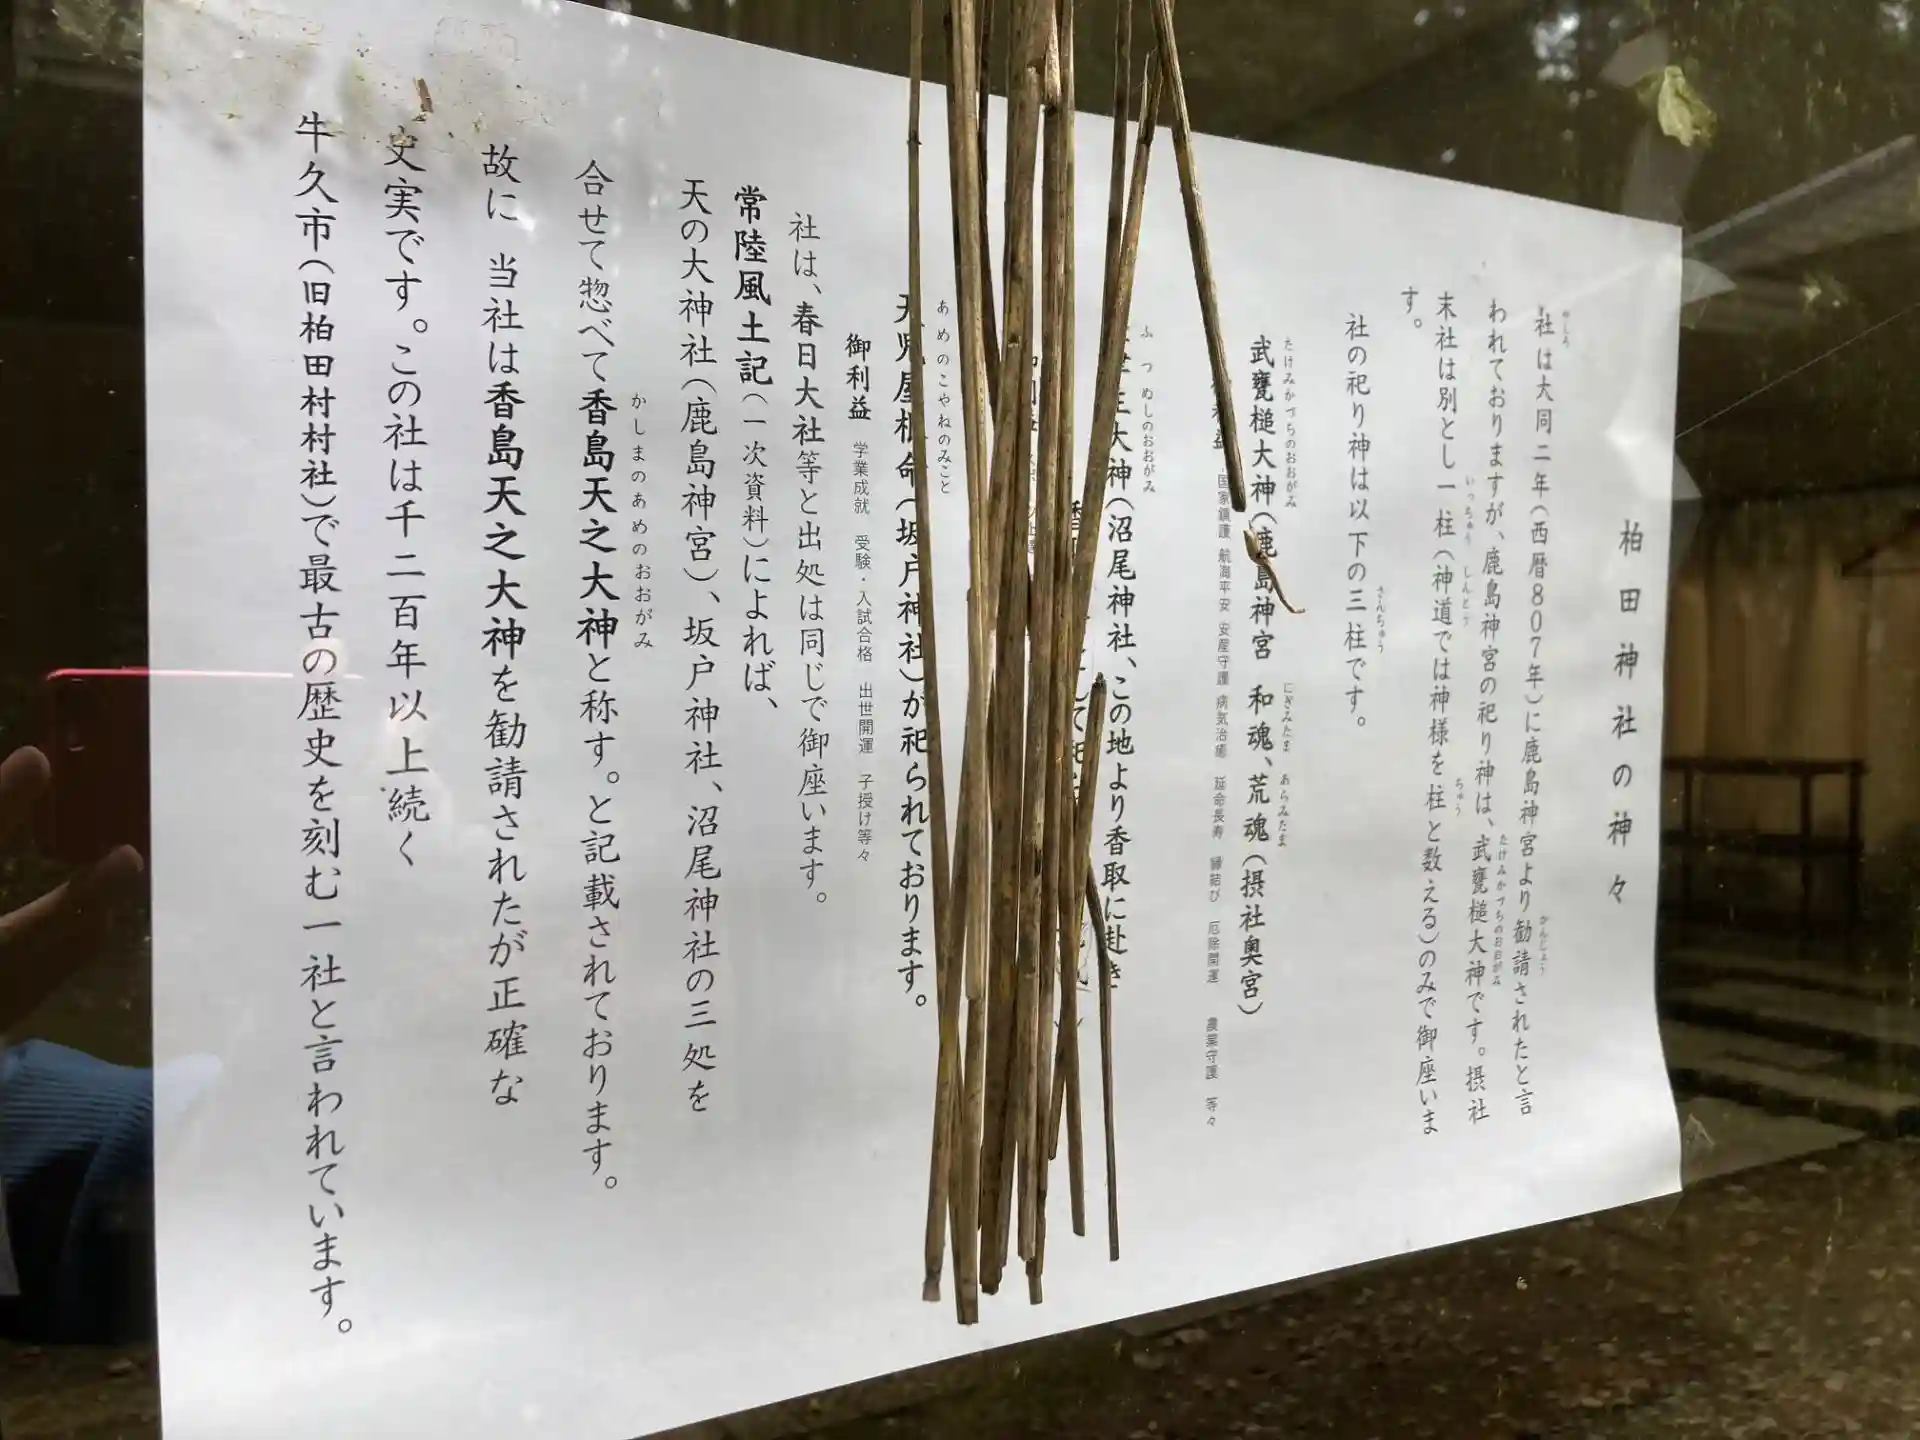 柏田神社の神々
社は大同二年(西暦807年)に鹿島神宮より勧請されたと言
われておりますが、鹿島神宮の祀り神は、武甕槌大神です。摂社
末社は別とし一柱(神道では神様を柱と数える)のみで御座いま
す。
社の祀り神は以下の三柱です。
武甕槌大神(鹿島神宮 和魂、荒魂(摂社奥宮)
国家鎮護 航海平安 安産守護 病気治癒 延命長寿 縁結び 厄除開運 農業守護 等々
大神(沼尾神社、この地より香取に赴き
天児屋根命(坂戸神社)が祀られております。
御利益 学業成就 受験・入試合格 出世開運 子授け等々
社は、春日大社等と出処は同じで御座います。
常陸風土記(一次資料)によれば、
天の大神社(鹿島神宮)、坂戸神社、沼尾神社の三処を
合せて惣べて香島天之大神と称す。と記載されております。
故に 当社は香島天之大神を勧請されたが正確な
史実です。この社は千二百年以上続く
牛久市(旧柏田村村社)で最古の歴史を刻む一社と言われています。